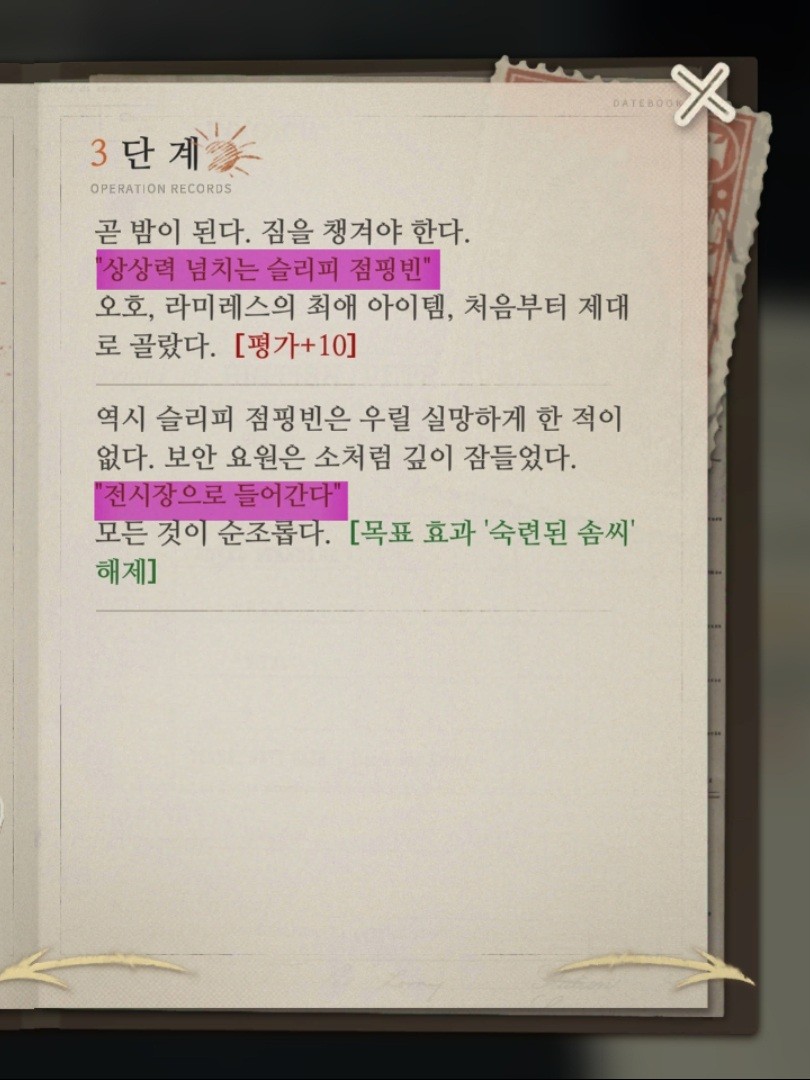 DATEBOOK
3 단 계
OPERATION RECORDS
곧 밤이 된다. 짐을 챙겨야 한다.
"상상력 넘치는 슬리피 점핑빈"
오호, 라미레스의 최애 아이템, 처음부터 제대
로 골랐다. [평가+10]
역시 슬리피 점핑빈은 우릴 실망하게 한 적이
없다. 보안 요원은 소처럼 깊이 잠들었다.
"전시장으로 들어간다"
모든 것이 순조롭다. [목표 효과 '숙련된 솜씨'
해제]